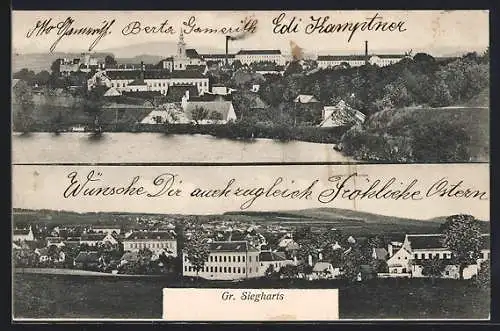 Otto Gamerith Berta Gamerith Edi Kamptner
Wünsche Dir auch zugleich Fröhliche Ostern
Gr. Siegharts